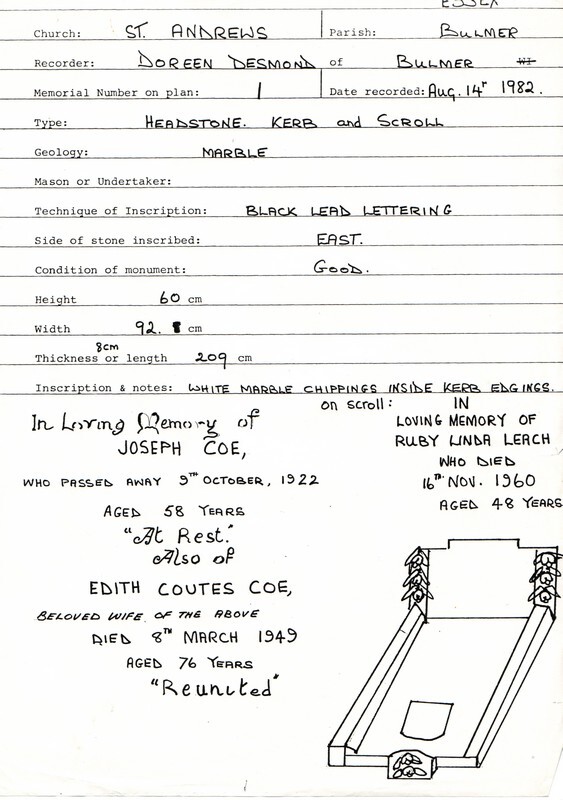 ESSEX
Church: ST. ANDREWS Parish: BULMER
Recorder: DOREEN DESMOND of BULMER WI
Memorial Number on plan: 1 Date recorded: Aug. 14r 1982.
Type: HEADSTONE. KERB and SCROLL
Geology: MARBLE
Mason or Undertaker:
Technique of Inscription: BLACK LEAD LETTERING
Side of stone inscribed: EAST.
Condition of monument: GOOD.
Height 60 cm
Width 92. cm
8cm
Thickness or length 209 cm
Inscription & notes: WHITE MARBLE CHIPPINGS INSIDE KERB EDGINGS.
In Loving Memory of
JOSEPH COE,
WHO PASSED AWAY 9TH OCTOBER, 1922
AGED 58 YEARS
"At Rest."
Also of
EDITH COUTES COE,
BELOVED WIFE OF THE ABOVE
DIED 8TH MARCH 1949
AGED 76 YEARS
"Reunited"
on scroll: IN
LOVING MEMORY OF
RUBY LINDA LEACH
WHO DIED
16TH NOV. 1960
AGED 48 YEARS